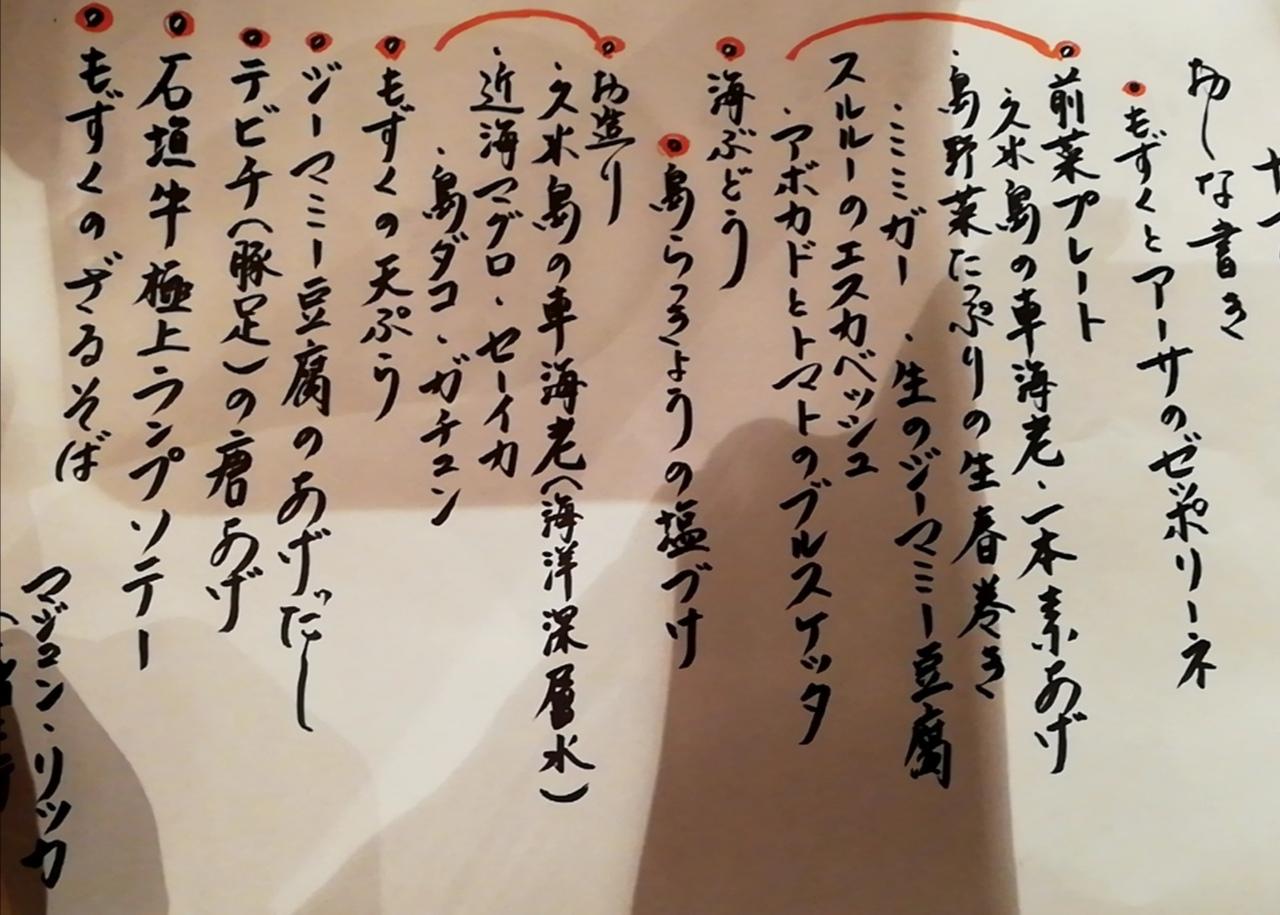 おしな書き
もずくとアーサのゼッポリーネ
前菜プレート
久米島の車海老・一本素あげ
・島野菜たっぷりの生春巻き
・ミミガー ・生のジーマミー豆腐
スルルーのエスカベッシュ
・アボカドとトマトのブルスケッタ
海ぶどう
島らっきょうの塩づけ
お造り
・久米島の車海老(海洋深層水)
・近海マグロ・セーイカ
・島ダコ・ガチュン
もずくの天ぷら
ジーマミー豆腐のあげだし
テビチ(豚足)の唐あげ
石垣牛 極上ランプソテー
もずくのざるそば
マジュン・リッカ